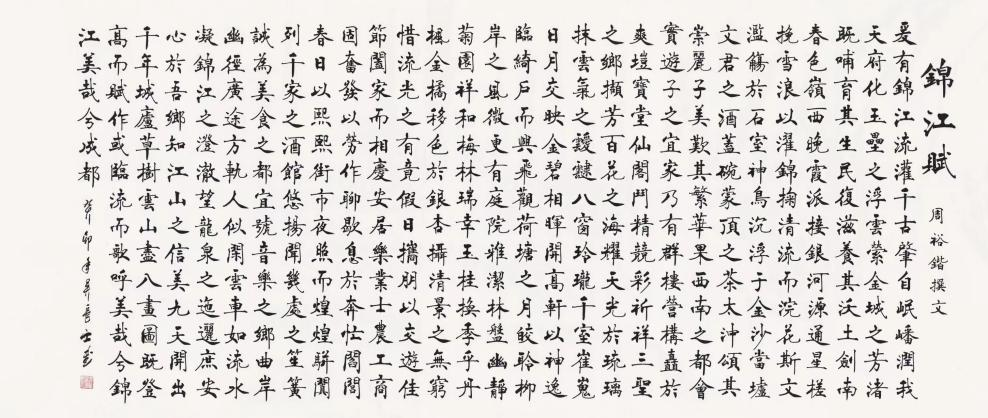 錦江賦
周裕鍇撰文
爰有錦江流灌千古肇自岷嶓潤我
天府化玉壘之浮雲縈金城之芳渚
既哺育其生民復滋養其沃土劍南
春色嶺西晚霞派接銀河源通星槎
挽雪浪以濯錦掬清流而浣花斯文
濫觴於石室神鳥沉浮于金沙當壚
文君之酒蓋碗蒙頂之茶太沖頌其
崇麗子美歎其繁華果西南之都會
實遊子之宜家乃有群樓營構矗於
爽塏寶堂仙閣鬥精競彩祈祥三聖
之鄉擷芳百花之海耀天光於琉璃
抹雲氣之靉靆八窗玲瓏千室崔嵬
日月交映金碧相暉開高軒以神逸
臨綺戶而興飛觀荷塘之月皎聆柳
岸之風微更有庭院雅潔林盤幽靜
菊園祥和梅林瑞幸玉桂換季乎丹
楓金橘移色於銀杏攝清景之無窮
惜流光之有竟假日攜朋以交遊佳
節闔家而相慶安居樂業士農工商
固奮發以勞作聊歇息於奔忙閭閻
春日以熙熙街市夜照而煌煌駢闐
列千家之酒館悠揚聞幾處之笙簧
誠為美食之都宜號音樂之鄉曲岸
幽徑廣途方軌人似閑雲車如流水
凝錦江之澄澈望龍泉之迤邐庶安
心於吾鄉知江山之信美九天開出
千年城廬草樹雲山盡入畫圖既登
高而賦作或臨流而歌呼美哉兮錦
江美哉兮成都
癸卯年